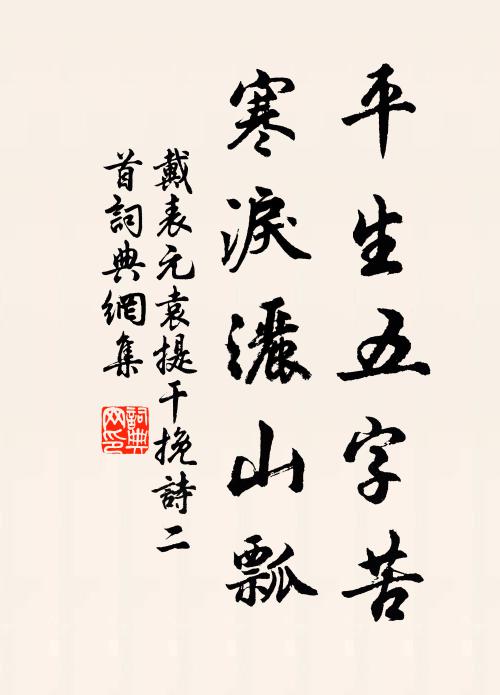 平生五字苦
寒淚灑山瓢
戴表元袁提干挽詩二
首詞典網集
詞典网印